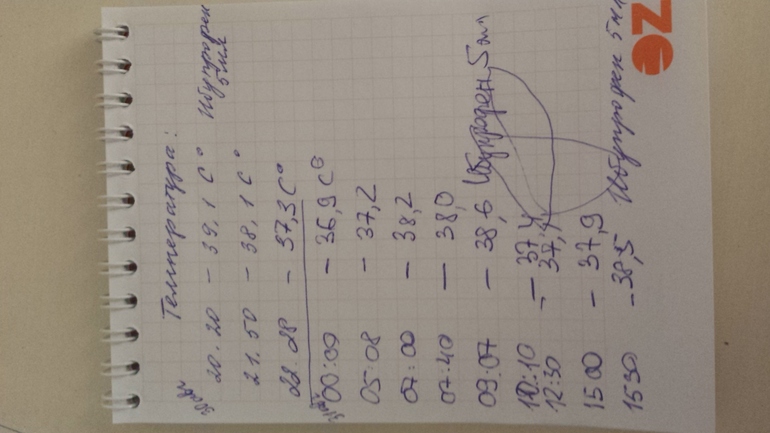 Температура:
20.20 - 39,1 С° Ибупрофен 5 мл
21.50 - 38,1 С°
22.28 - 37,3 С°
00:00 - 36,9 С°
05:08 - 37,2
07:00 - 38,2
07:40 - 38,0
09:07 - 38,6 Ибупрофен 5 мл
10:10 - 37,4
12:30 - 37,4
1500 - 37,9
1530 - 38,5 Ибупрофен 5 мл